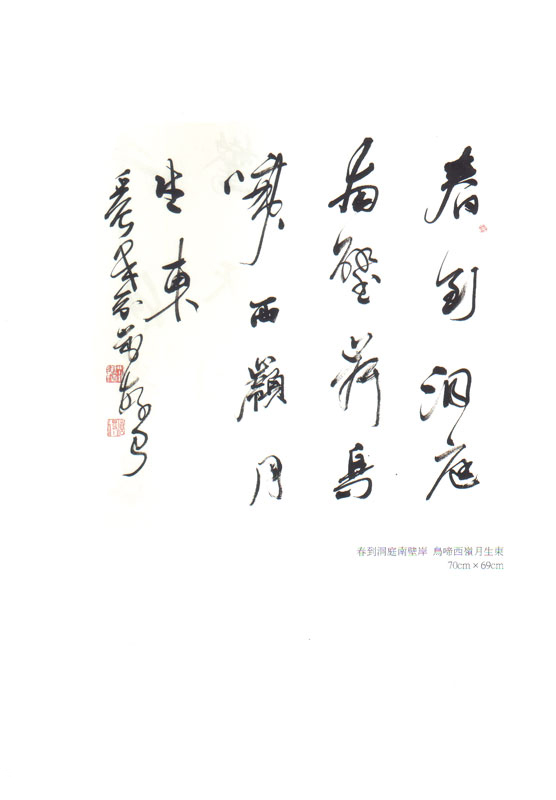 春到洞庭
南壁岸鳥
啼西嶺月
生東
春到洞庭南壁岸 鳥啼西嶺月生東
70cm × 69cm